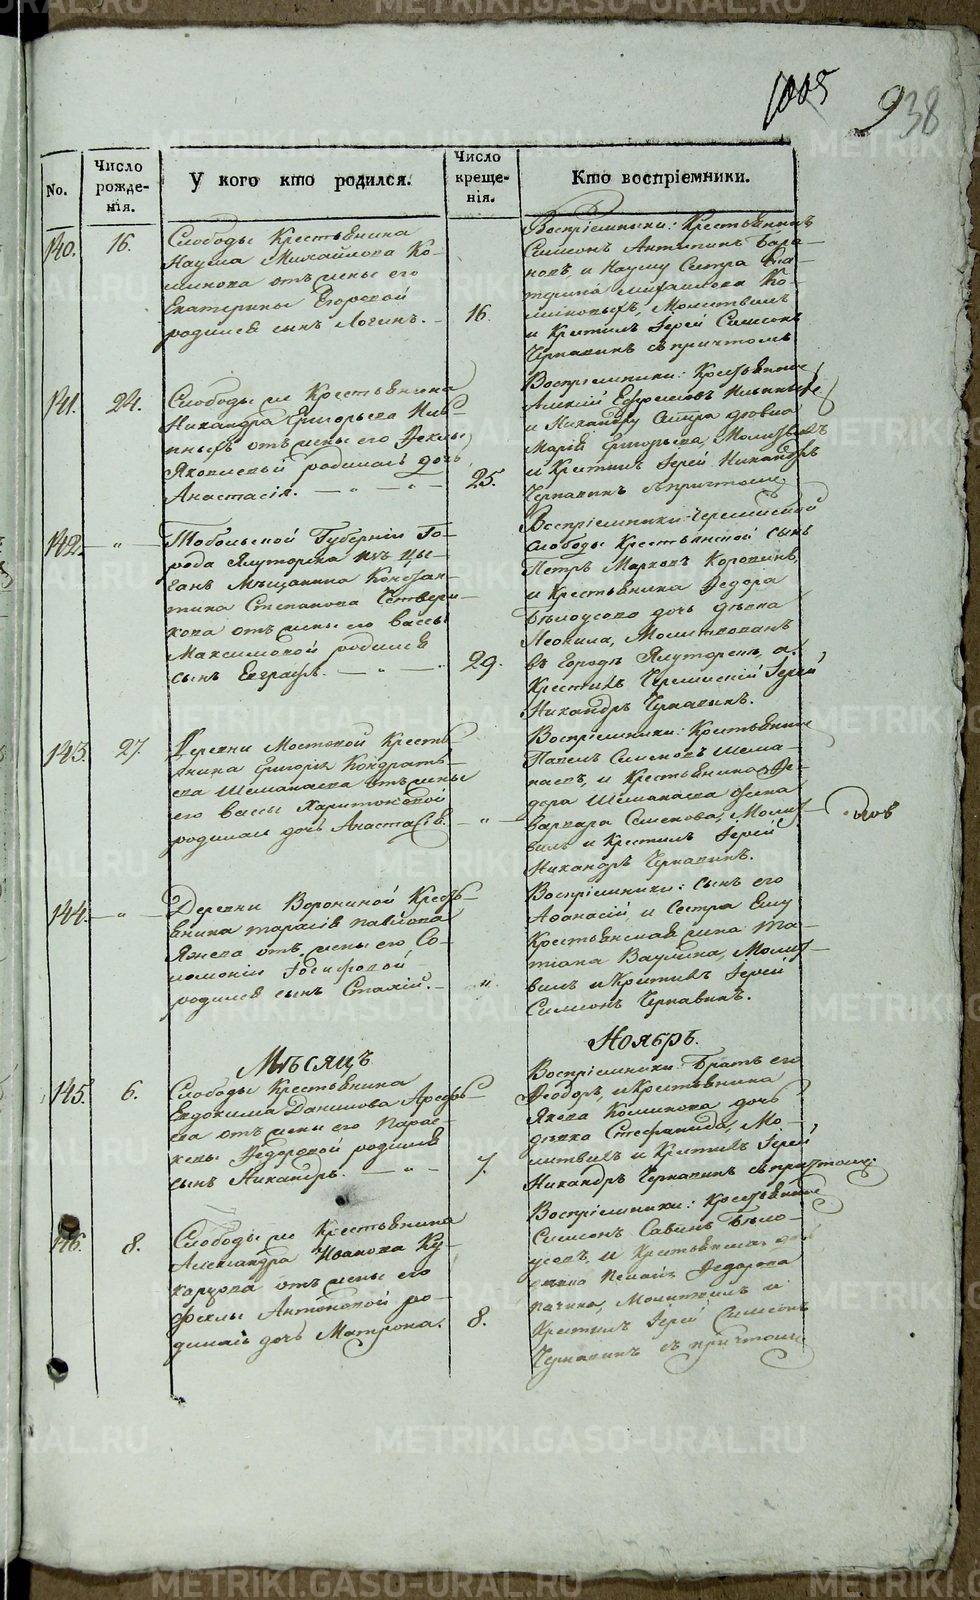 1005
938
No.
Число рожде-нія.
У кого кто родился.
Число креще-нія.
Кто воспріемники.
140.
16.
Слободы Крестьянина
Наума Михайлова Ко-
минова отъ жены его
Екатерины Егоровой
родился сынъ Логинъ.
16.
Воспріемники: Крестьянинъ
Симеонъ Антипинъ
и Наума Сестра
Михайлова Ко-
миновыхъ, Молитвилъ
и Крестилъ Іерей Симеонъ
Чернавинъ съ причтомъ
141.
24.
Слободы же Крестьянина
Никандра Григорьева
отъ жены его Феклы
Яковлевой родилась дочь
Анастасія. — „ — „ —
25.
Воспріемники: Крестьянинъ
Алексій Ефремовъ
и Никандру Сестра девка
Марія Григорьева, Молитвилъ
и Крестилъ Іерей Никандръ
Чернавинъ съ причтомъ
142.
„
Тобольской Губерніи Го-
рода Ялуторска изъ цы-
ганъ Мѣщанина Констан-
тина Степанова Четвери-
кова отъ жены его Вассы
Максимовой родился
сынъ Евграфъ. — „ — „
29.
Воспріемники:
слободы Крестьянской сынъ
Петръ Марковъ Коровинъ,
и Крестьянина Федора
Бѣлоусова дочь дѣвка
Неонила, Молитвованъ
въ Городѣ Ялуторскѣ, а
Крестилъ Іерей
Никандръ Чернавинъ.
143.
27.
Деревни Мостовой Кресть-
янина Григорья Кондрать-
ева Шеманаева отъ жены
его Вассы Харитоновой
родилась дочь Анастасія. —
„
Воспріемники: Крестьянинъ
Павелъ Симеоновъ Шема-
наевъ, и Крестьянина Фе-
дора Шеманаева жена
Варвара Семенова, Молит-
вилъ и Крестилъ Іерей
Никандръ Чернавинъ.
144.
„
Деревни Ворониной Кресть-
янина Тарасія Павлова
отъ жены его Со-
ломоніи Іосифовой
родился сынъ
„
Воспріемники: сынъ его
Афанасій, и Сестра Ему
Крестьянская жена Та-
тіана Ваулина, Молит-
вилъ и Крестилъ Іерей
Симеонъ Чернавинъ.
Мѣсяцъ
Ноябрь.
145.
6.
Слободы Крестьянина
Евдокима Данилова Арефь-
ева отъ жены его Парас-
кевы Федоровой родился
сынъ Никандръ. — „ —
7.
Воспріемники: Братъ его
Феодоръ, и Крестьянина
Якова Коминова дочь
дѣвка Стефанида, Мо-
литвилъ и Крестилъ Іерей
Никандръ Чернавинъ съ причтомъ.
146.
8.
Слободы же Крестьянина
Александра Иванова Ку-
карцова отъ жены его
Феклы Антоновой ро-
дилась дочь Матрона.
8.
Воспріемники: Крестьянинъ
Симеонъ Савинъ Бѣло-
усовъ, и Крестьянская
Федорова
Молитвилъ и
Крестилъ Іерей Симеонъ
Чернавинъ съ причтомъ
METRIKI.GASO-URAL.RU